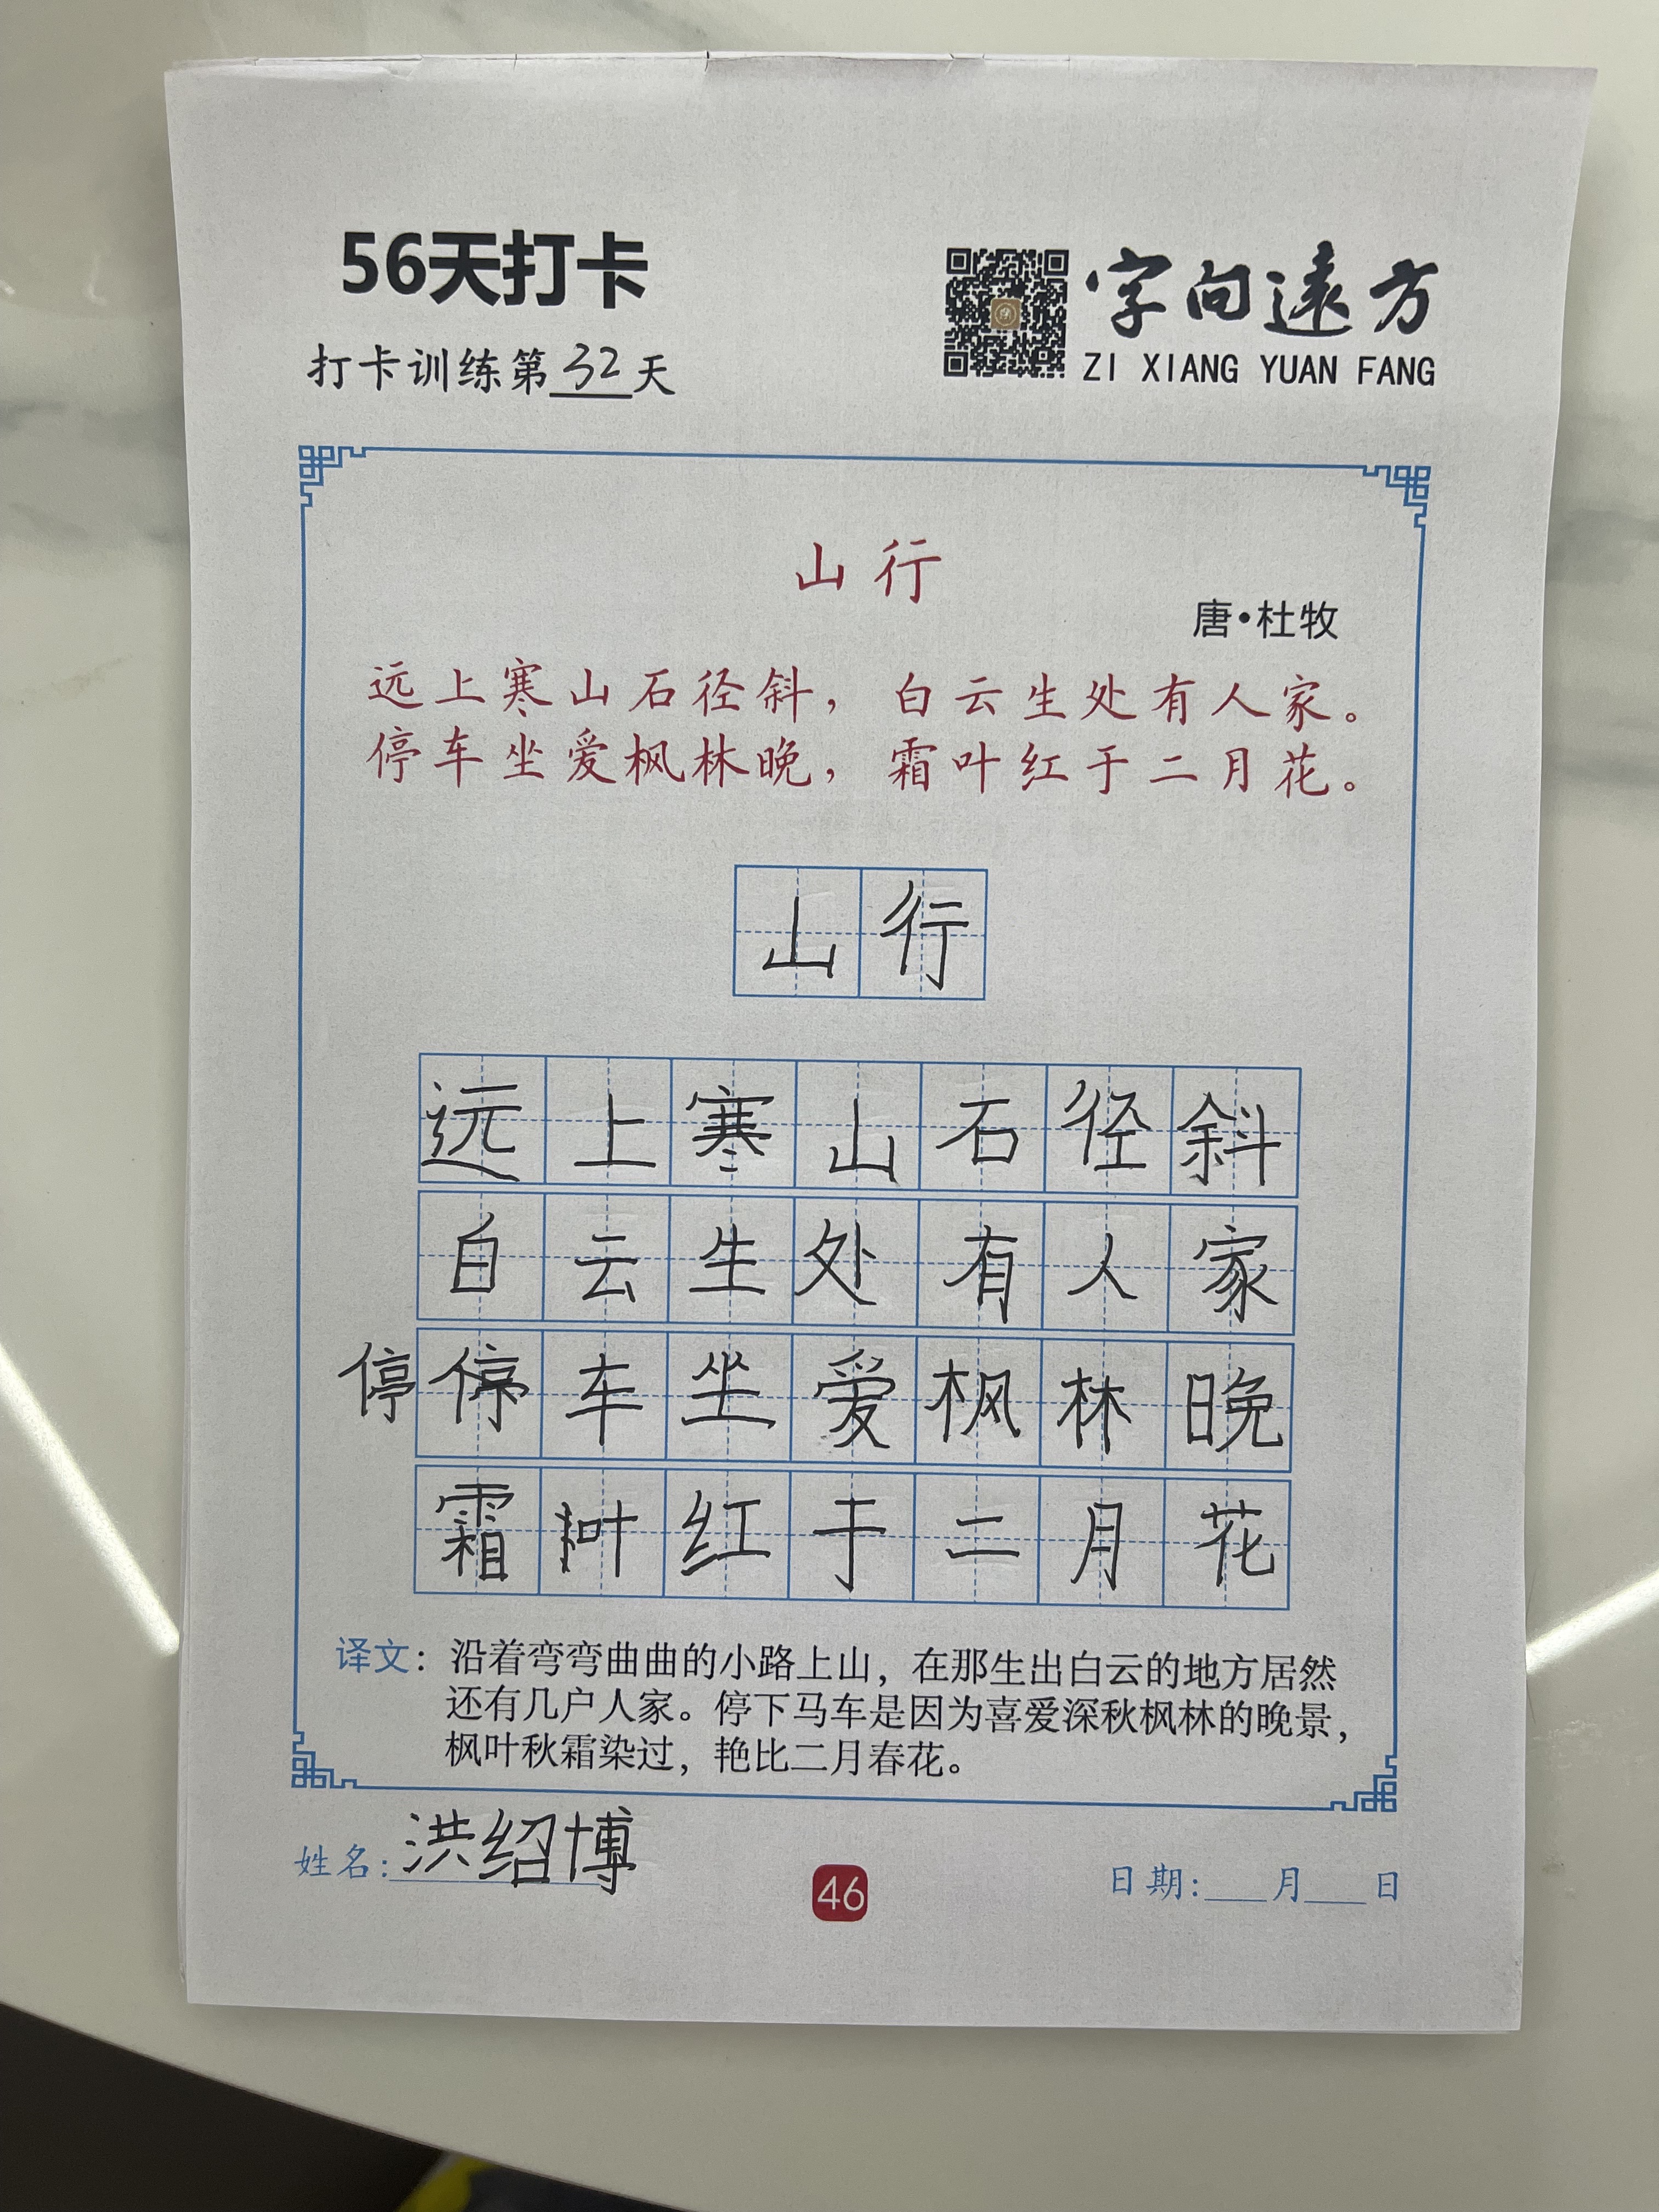 56天打卡
打卡训练第32天
字向遠方
ZI XIANG YUAN FANG
山行
唐•杜牧
远上寒山石径斜，白云生处有人家。
停车坐爱枫林晚，霜叶红于二月花。
山行
远上寒山石径斜
白云生处有人家
停停车坐爱枫林晚
霜叶红于二月花
译文：沿着弯弯曲曲的小路上山，在那生出白云的地方居然
还有几户人家。停下马车是因为喜爱深秋枫林的晚景，
枫叶秋霜染过，艳比二月春花。
姓名：洪绍博
46
日期：___月___日